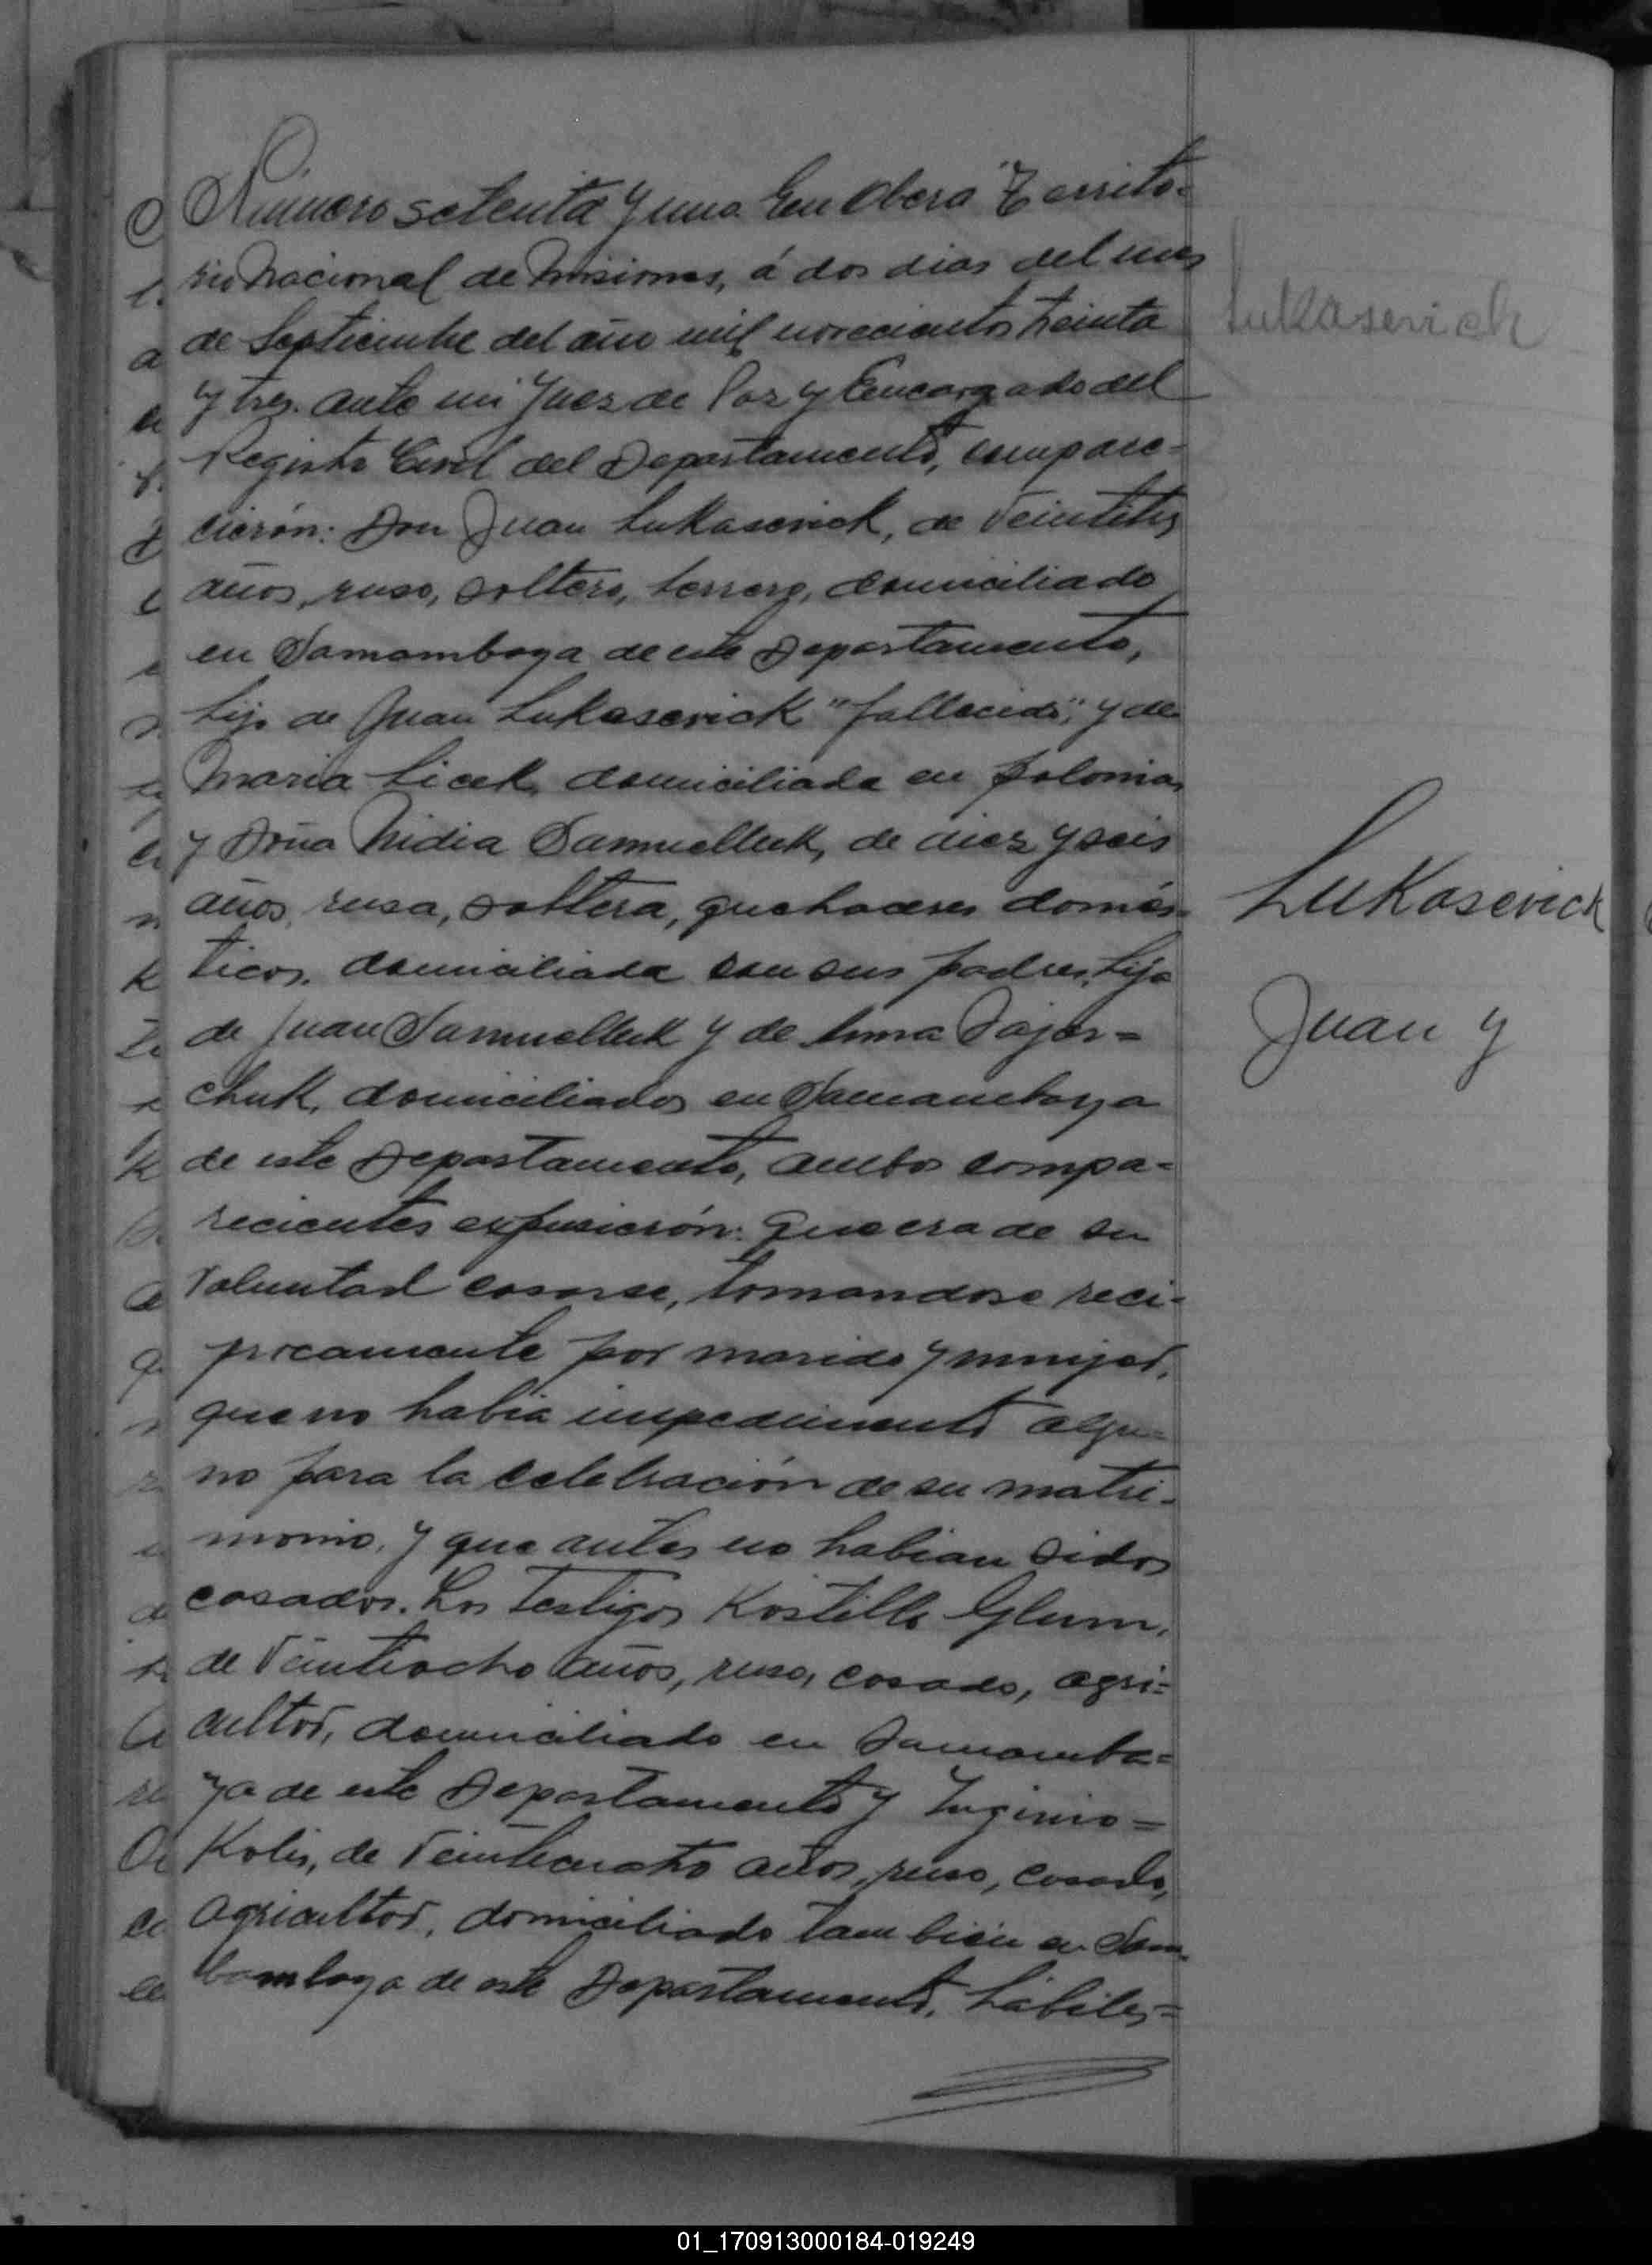 Número setenta y uno. En Obera Territo-
rio Nacional de Misiones, á dos dias del mes
de Septiembre del año mil novecientos treinta
y tres. ante mi Juez de Paz y Encargado del
Registro Civil del Departamento, compare-
cieron: Don Juan Lukasevick, de veintitres
años, ruso, soltero, herrero, domiciliado
en Samambaya de este Departamento,
hijo de Juan Lukasevick "fallecido", y de
Maria Licek, domiciliada en Polonia,
y Doña Nidia Samuelluk, de diez y seis
años, rusa, soltera, quehaceres domés-
ticos, domiciliada con sus padres, hija
de Juan Samuelluk y de Anna
chuk, domiciliados en Samambaya
de este Departamento, ambos compa-
recientes expusierón: Que era de su
voluntad casarse, tomandose reci-
procamente por marido y mujer,
que no habia impedimento algu-
no para la celebración de su matri-
monio, y que antes no habian sidos
casados. Los testigos Kostillo Glum,
de Veintiocho años, ruso, casado, agri-
cultor, domiciliado en Samamba-
ya de este Departamento y
Kolis, de Veinticuatro años, ruso, casado,
agricultor, domiciliado tambien en Sam
bambaya de este Departamento, hábiles-
Lukasevich
Lukasevick
Juan y
01_170913000184-019249